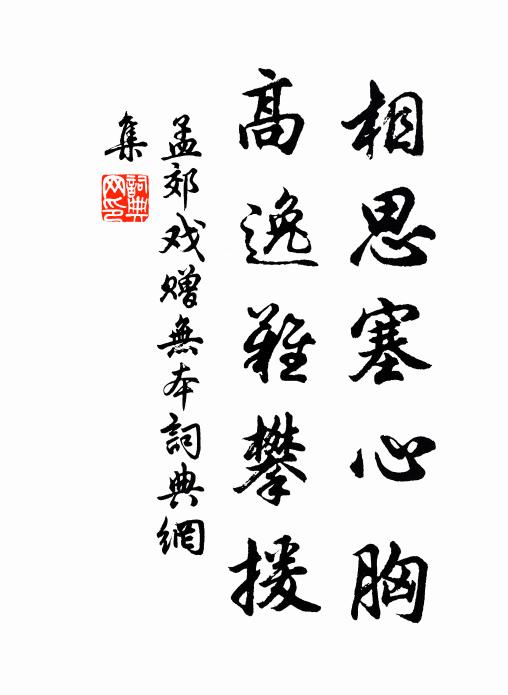 相思塞心胸
高逸難攀援
孟郊戏贈無本詞典網
集
詞典
网印